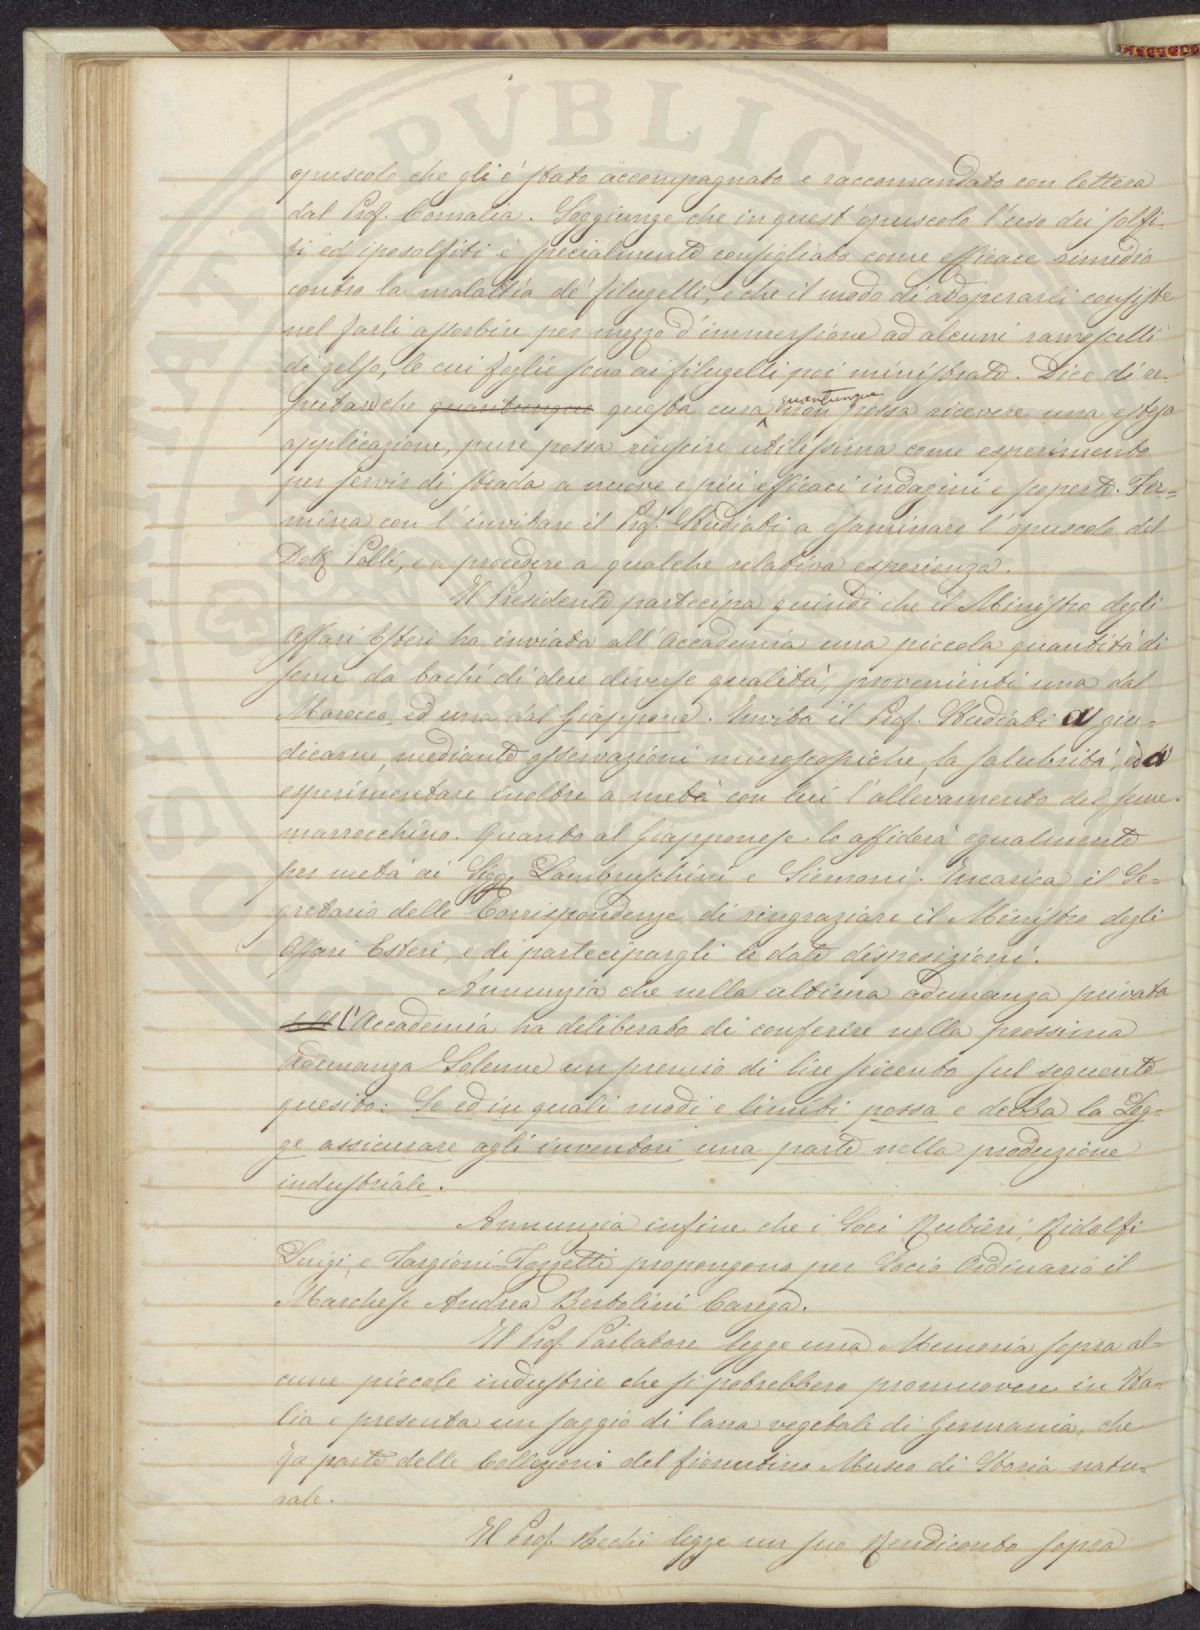 opuscolo che gli è stato accompagnato e raccomandato con lettera
dal Prof. Cornalia. Soggiunge che in quest'opuscolo l'uso dei solfi-
ti ed iposolfiti è specialmente consigliato come efficace rimedio
contro la malattia de' filugelli, e che il modo di adoperarli consiste
nel farli assorbire per mezzo d'immersione ad alcuni ramoscelli
di gelso, le cui foglie sono ai filugelli poi ministrate. Dice di re-
putare che quantunque questa cura quantunque non possa ricevere una estesa
applicazione, pure possa riuscire utilissima come esperimento
per servir di strada a nuove e più efficaci indagini e scoperte. Ter-
mina con l'invitare il Prof. Studiati a esaminare l'opuscolo del
Dott Polli, e a procedere a qualche relativa esperienza.
Il Presidente partecipa quindi che il Ministro degli
Affari Esteri ha inviata all'Accademia una piccola quantità di
seme da bachi di due diverse qualità, provenienti una dal
Marocco, ed una dal Giappone. Invita il Prof. Studiati a giu-
dicarne, mediante osservazioni microscopiche, la salubrità, ed a
esperimentare inoltre a metà con lui l'allevamento del seme
marrocchino. Quanto al Giapponese lo affiderà egualmente
per metà ai Sigg. Lambruschini e Siemoni. Incarica il Se-
gretario delle Corrispondenze di ringraziare il Ministro degli
Affari Esteri, e di partecipargli le date disposizioni.
Annunzia che nella ultima adunanza privata
l'Accademia ha deliberato di conferire nella prossima
Adunanza Solenne un premio di lire seicento sul seguente
quesito: Se ed in quali modi e limiti possa e debba la Leg-
ge assicurare agli inventori una parte nella produzione
industriale.
Annunzia infine che i Soci Rubieri, Ridolfi
Luigi, e Targioni-Tozzetti propongono per Socio Ordinario il
Marchese Andrea Bertolini Carega.
Il Prof. Parlatore legge una Memoria sopra al-
cune piccole industrie che si potrebbero promuovere in Ita-
lia e presenta un saggio di lana vegetale di Germania, che
fa parte delle Collezioni del fiorentino Museo di Storia natu-
rale.
Il Prof. Bechi legge un suo Rendiconto sopra